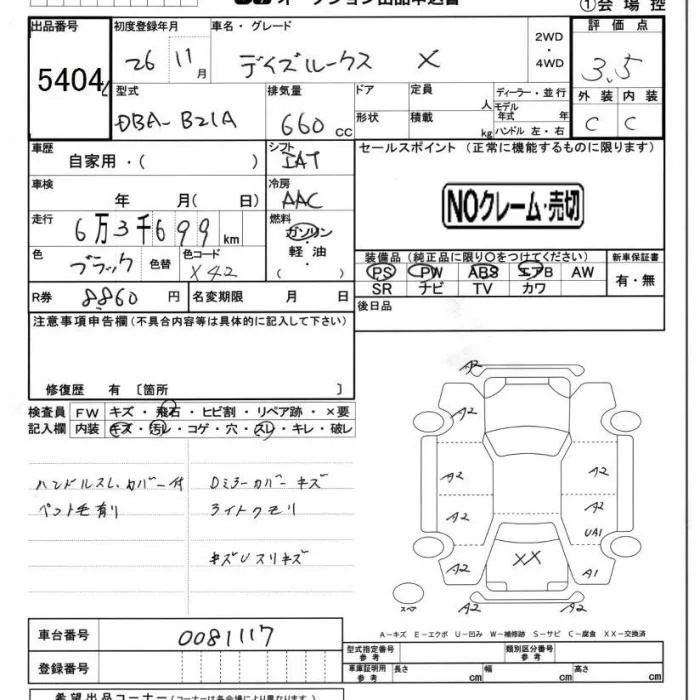 オークション出品申込書
①会場控
出品番号 初度登録年月 車名・グレード 2WD ・ 4WD 評価点
5404 26 11月 デイズルークス X 3.5
型式 排気量 ドア 定員 人 ディーラー・並行 外装 内装
DBA-B21A 660 CC 形状 積載 kg モデル年式 年 ハンドル 左・右 C C
車歴 自家用・( ) シフト IAT セールスポイント (正常に機能するものに限ります)
車検 年 月( 日) 冷房 AAC NOクレーム・売切
走行 6万3千699km 燃料 ガソリン・軽油・( )
色 ブラック 色替 色コード X42 装備品(純正品に限り○をつけてください) 新車保証書
PS PW ABS エアB AW 有・無
SR ナビ TV カワ
R券 8860円 名変期限 月 日 後日品
注意事項申告欄(不具合内容等は具体的に記入して下さい)
修復歴 有 〔箇所 〕
検査員 FW キズ・飛石・ヒビ割・リペア跡・×要
記入欄 内装 キズ・汚レ・コゲ・穴・スレ・キレ・破レ
ハンドルスレ カバー付 Dミラーカバーキズ
ペット毛有り ライトクモリ
キズUスリキズ
A2
A2
A2 A2
A2 A2
UA1
XX
A2 A1
A2 A2
スペア
A-キズ E-エクボ U-凹み W-補修跡 S-サビ C-腐食 XX-交換済
車台番号 0081117 型式指定番号 参考 類別区分番号 参考
登録番号 車庫証明用 参考 長さ cm 幅 cm 高さ cm
希望出品コーナー(コーナーは各会場により異なります)